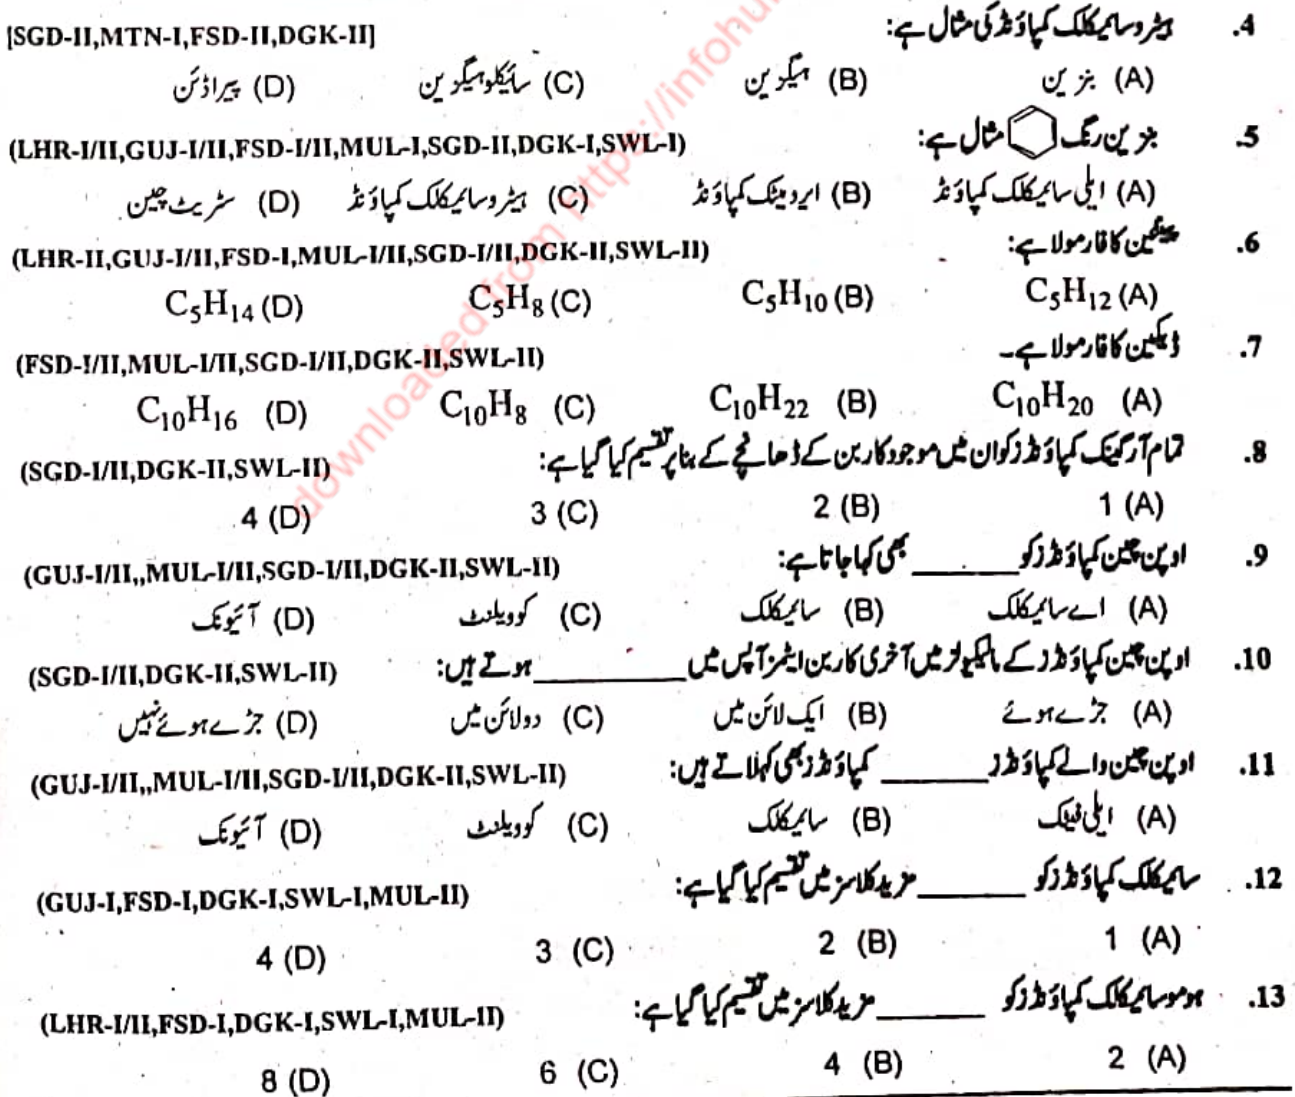 4. ہیٹروسائیکلک کمپاؤنڈ کی مثال ہے: [SGD-II,MTN-I,FSD-II,DGK-II]
(A) بنزین (B) ہیگزین (C) سائیکلوہیگزین (D) پیراڈئن
5. بنزین رنگ مثال ہے: (LHR-I/II,GUJ-I/II,FSD-I/II,MUL-I,SGD-II,DGK-I,SWL-I)
(A) ایلی سائیکلک کمپاؤنڈ (B) ایرومیٹک کمپاؤنڈ (C) ہیٹروسائیکلک کمپاؤنڈ (D) سٹریٹ چین
6. پینٹین کا فارمولا ہے: (LHR-II,GUJ-I/II,FSD-I,MUL-I/II,SGD-I/II,DGK-II,SWL-II)
C₅H₁₂ (A) C₅H₁₀ (B) C₅H₈ (C) C₅H₁₄ (D)
7. ڈیکین کا فارمولا ہے۔ (FSD-I/II,MUL-I/II,SGD-I/II,DGK-II,SWL-II)
C₁₀H₂₀ (A) C₁₀H₂₂ (B) C₁₀H₈ (C) C₁₀H₁₆ (D)
8. تمام آرگینک کمپاؤنڈز کو ان میں موجود کاربن کے ڈھانچے کے بنا پر تقسیم کیا گیا ہے: (SGD-I/II,DGK-II,SWL-II)
1 (A) 2 (B) 3 (C) 4 (D)
9. اوپن چین کمپاؤنڈز کو ______ بھی کہا جاتا ہے: (GUJ-I/II,,MUL-I/II,SGD-I/II,DGK-II,SWL-II)
(A) اے سائیکلک (B) سائیکلک (C) کوویلنٹ (D) آئیونک
10. اوپن چین کمپاؤنڈز کے مالیکیولز میں آخری کاربن ایٹمز آپس میں ______ ہوتے ہیں: (SGD-I/II,DGK-II,SWL-II)
(A) جڑے ہوئے (B) ایک لائن میں (C) دو لائن میں (D) جڑے ہوئے نہیں
11. اوپن چین والے کمپاؤنڈز ______ کمپاؤنڈز بھی کہلاتے ہیں: (GUJ-I/II,,MUL-I/II,SGD-I/II,DGK-II,SWL-II)
(A) ایلی فیٹک (B) سائیکلک (C) کوویلنٹ (D) آئیونک
12. سائیکلک کمپاؤنڈز کو ______ مزید کلاسز میں تقسیم کیا گیا ہے: (GUJ-I,FSD-I,DGK-I,SWL-I,MUL-II)
1 (A) 2 (B) 3 (C) 4 (D)
13. ہوموسائیکلک کمپاؤنڈز کو ______ مزید کلاسز میں تقسیم کیا گیا ہے: (LHR-I/II,FSD-I,DGK-I,SWL-I,MUL-II)
2 (A) 4 (B) 6 (C) 8 (D)
downloaded from https://infohu